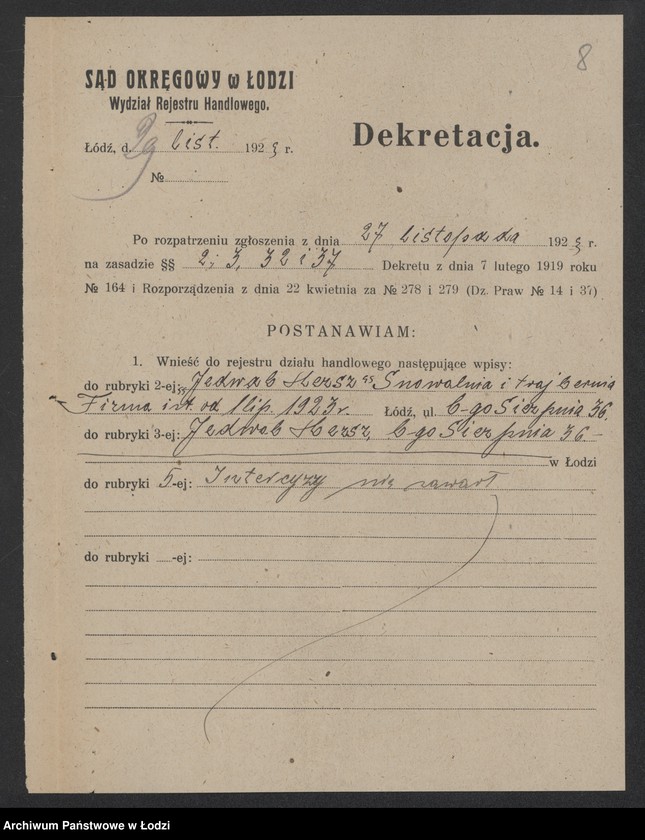 8
SĄD OKRĘGOWY w ŁODZI
Wydział Rejestru Handlowego.
Dekretacja.
Łódź, d. 29 list. 1923 r.
№
Po rozpatrzeniu zgłoszenia z dnia 27 listopada 1923 r.
na zasadzie §§ 2, 3, 32 i 37 Dekretu z dnia 7 lutego 1919 roku
№ 164 i Rozporządzenia z dnia 22 kwietnia za № 278 i 279 (Dz. Praw № 14 i 37)
POSTANAWIAM:
1. Wnieść do rejestru działu handlowego następujące wpisy:
do rubryki 2-ej: „Jedwab Hersz" Snowalnia i trajbernia
Firma ist. od 1 lip. 1923 r. Łódź, ul. 6-go Sierpnia 36.
do rubryki 3-ej: Jedwab Hersz, 6-go Sierpnia 36 –
w Łodzi
do rubryki 5-ej: Intercyzy nie zawarł
do rubryki -ej:
Archiwum Państwowe w Łodzi